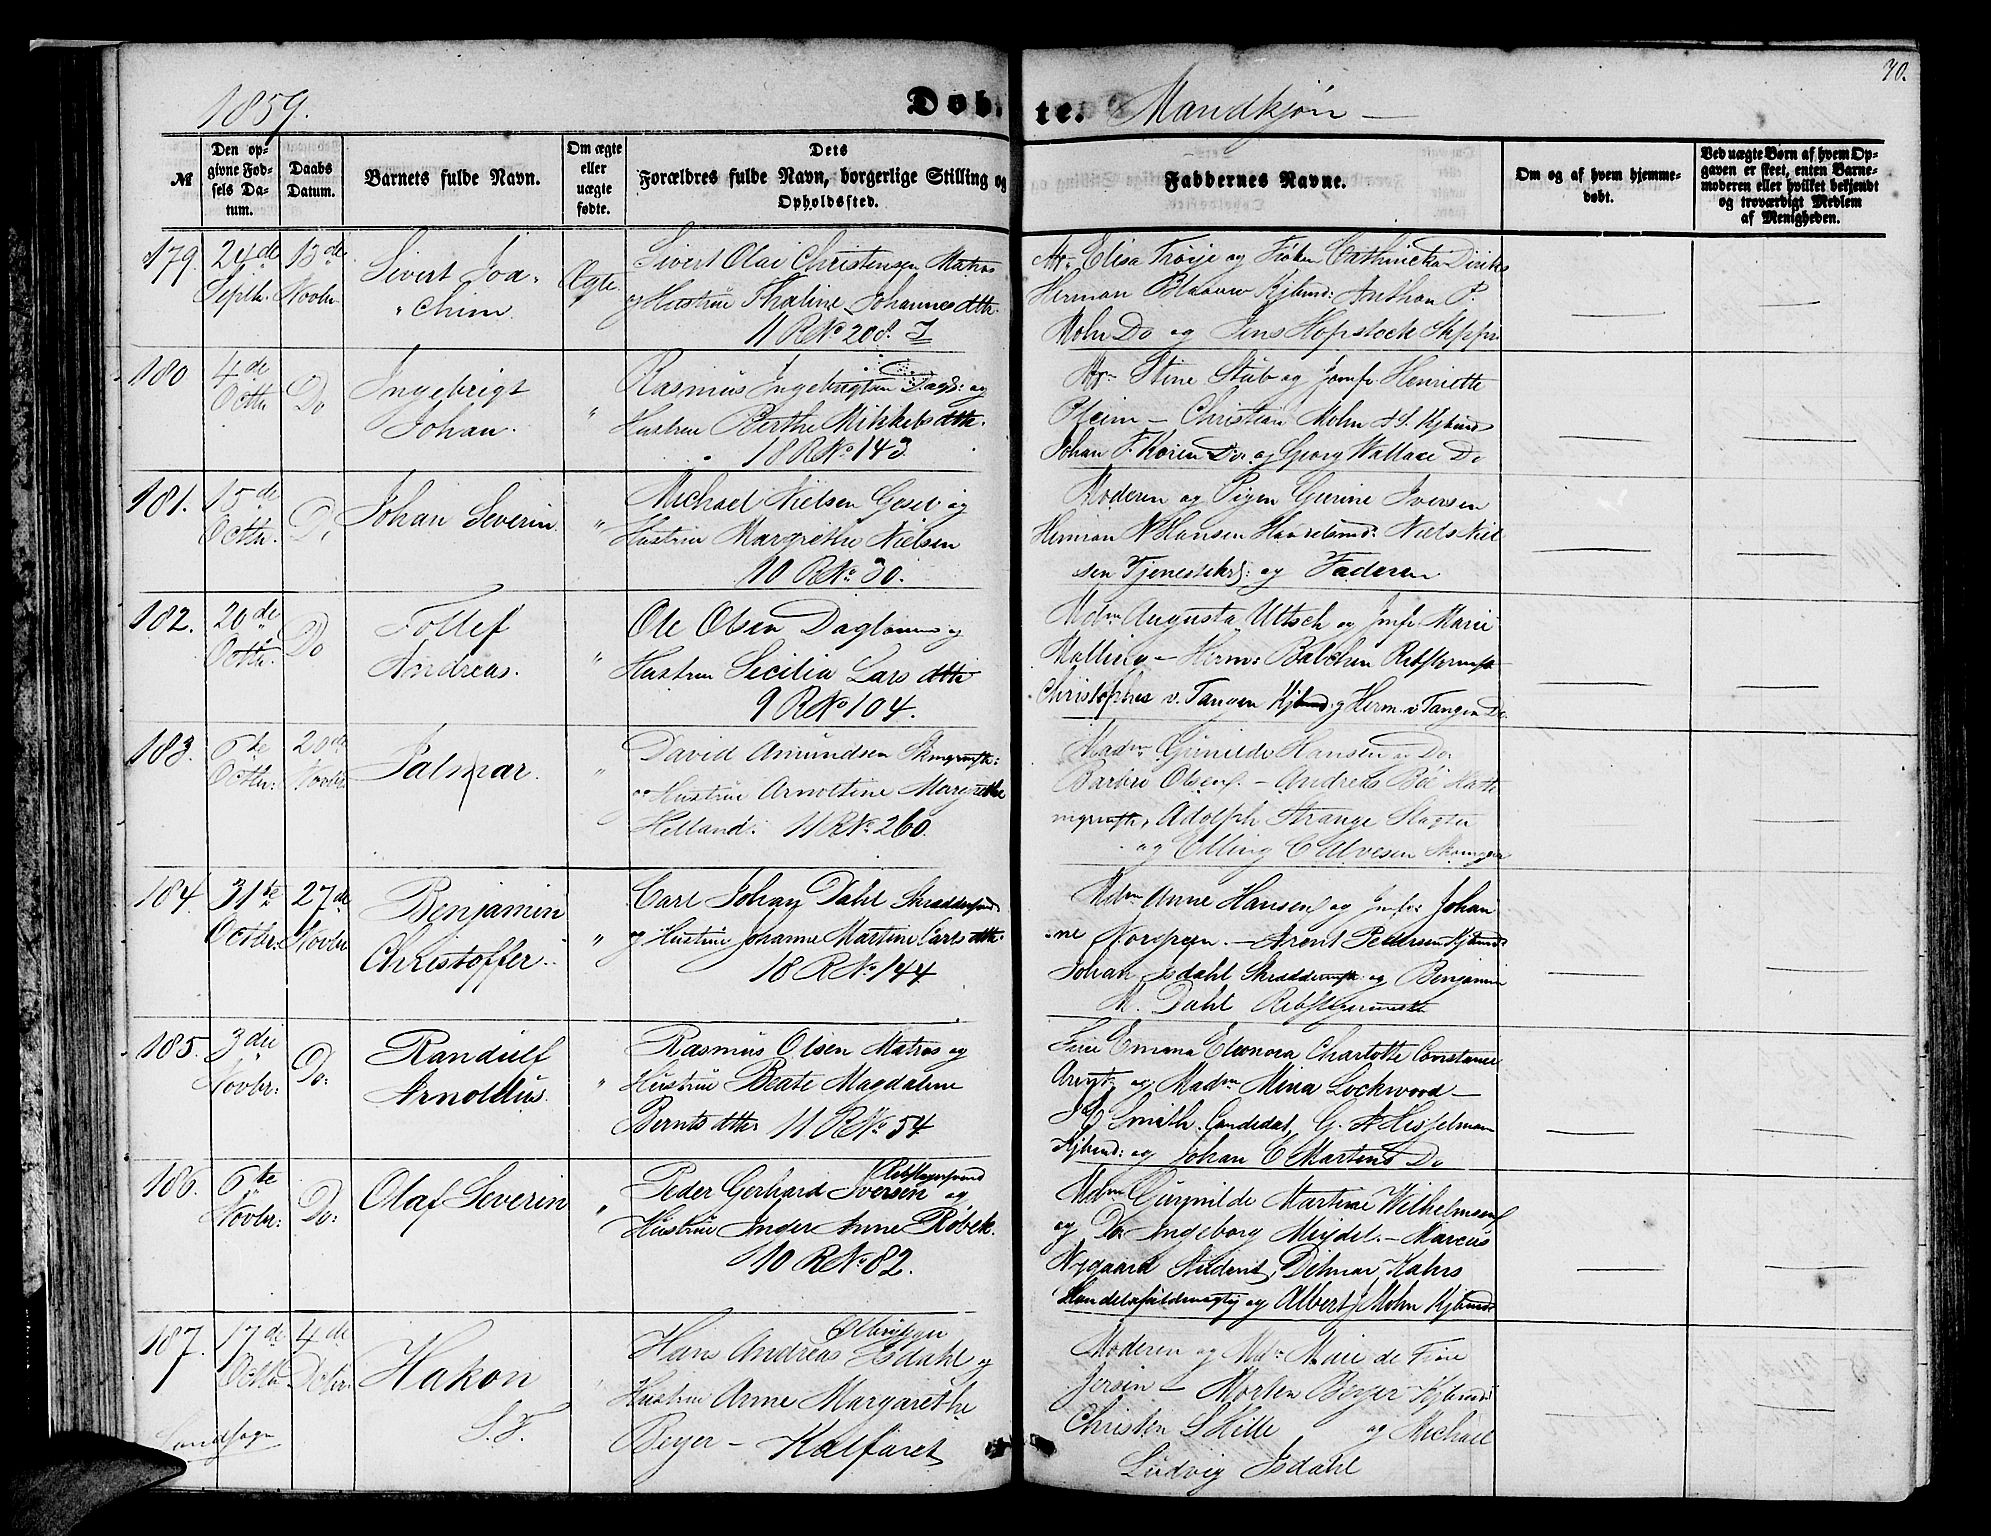 70.
1859. Døbte. Mandkjøn —
№
Den opgivne Fødsels Datum.
Daabs Datum.
Barnets fulde Navn.
Om ægte eller uægte fødte.
Dets Forældres fulde Navn, borgerlige Stilling og Opholdssted.
Faddernes Navne.
Om og af hvem hjemmedøbt.
Ved uægte Børn af hvem Opgaven er skeet, enten Barnemoderen eller hvilket bekjendt og troværdigt Medlem af Menigheden.
179. 24de Septbr. 13de Novbr
Sivert Joachim.
Ægte
Sivert Olai Christensen Matros
og Hustrue Thaline Johannesdttr.
11 R No 208.
Elisa Trøije og Frøken Cathincka Diriks
Herman Blaauw Kjbmd: Anthon P.
Mohn Do og Jens Hopstock Skipper
180 4de Octbr Do
Ingebrigt
Johan.
"
Rasmus Ingebrigtsen Dagl: og
Hustrue Berthe Mikkelsdttr.
18 R No 143
Stine Stub og Jomfr Henriette
Pleim — Christian Mohn Kjbmd
Johan F. Koren Do. og Georg Wallace Do
181. 15de Octbr. Do
Johan Severin.
"
Michael Nielsen Gesel og
Hustrue Margrethe Nielsen
10 R No 30.
Moderen og Pigen Gurine Iversen
Hemran N Hansen Handelsmd: Niels Niel
sen Tjenestekrl: og Faderen
182. 20de Octbr. Do
Tollef
Andreas.
"
Ole Olsen Daglønner og
Hustrue Secilia Larsdttr
9 R No 104.
Mdm Augusta Ultsch og Jmfr Marie
Malling — Herm: Balchen Rebslermstr
Christopher v. Tangen Kjbmd og Herm. v Tangen Do
183. 6te Octbr: 20de Novbr
Jalmar.
"
David Amundsen Skomgrmstr:
og Hustrue Arnoltine Margrethe
Helland. 11 R No 260.
Madm Gunilde Hansen og Do
Barbro Olsen — Andreas Bøe Hatte
mgrmstr, Adolph Strange Slagter
og Elling E Alvesen Skomager
184. 31te Octbr: 27de Novbr
Benjamin
Christoffer.
"
Carl Johan Dahl Skræddersvend
og Hustrue Johanne Martine Carlsdttr.
18 R No 144
Mdm Anne Hansen og Jmfr: Johan
ne Norgreen. — Arent Pedersen Kjbmd
Johan Isdahl Skræddermstr. og Benjamin
M. Dahl Rebslagermester
185. 3die Novbr: Do:
Randulf
Arnoldus.
"
Rasmus Olsen Matros og
Hustrue Beate Magdalene
Berntsdttr 11 R No 54
Frue Emma Eleonora Charlotte Constance
Arentz og Madm Mina Lockwood —
Smith. Candidat, G. A Hesselman
Kjbmd: og Johan C Martens Do
186. 6te Novbr: Do:
Olaf Severin
"
Rebslagersvend
Peder Gerhard Iversen og
Hustrue Inger Anne Røbek.
10 R No 82.
Mdm Gurgnilde Martine Wilhelmsen
og Do Ingeborg Meydel. — Marcus
Nygaard Student, Ditmar Kahrs
Handelsfuldmægtig og Albert Mohn Kjbmd
187. 17de Octbr 4de Dcbr.
Landsogn
Hakon
S. F.
"
Ølbrygger
Hans Andreas Isdahl og
Hustrue Anne Margarethe
Beyer — Kalfaret
Moderen og Mdm Marie de Fine
Jersin — Morten Beyer Kjbmd
Christen S Hille og Michael
Ludvig Isdahl